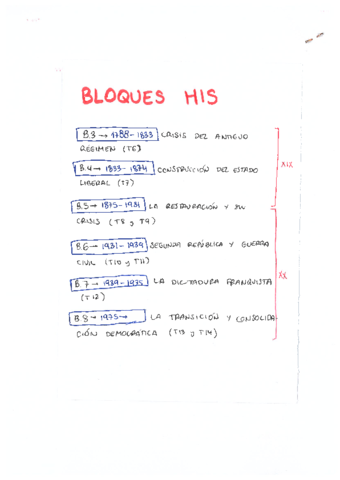 BLOQUES HIS
B.3 → 1788-1833 CRISIS DEL ANTIGUO
REGIMEN (T6)
B.4 → 1833-1874 CONSTRUCCIÓN DEL ESTADO
LIBERAL (T7)
XIX
B.5 → 1875-1931 LA RESTAURACIÓN Y SU
CRISIS (T8 y T9)
B.6 → 1931-1939 SEGUNDA REPÚBLICA Y GUERRA
CIVIL (T10 y T11)
XX
B.7 → 1939-1975 LA DICTADURA FRANQUISTA
(T12)
B.8 → 1975→ LA TRANSICIÓN Y CONSOLIDA
CIÓN DEMOCRÁTICA (T13 y T14)